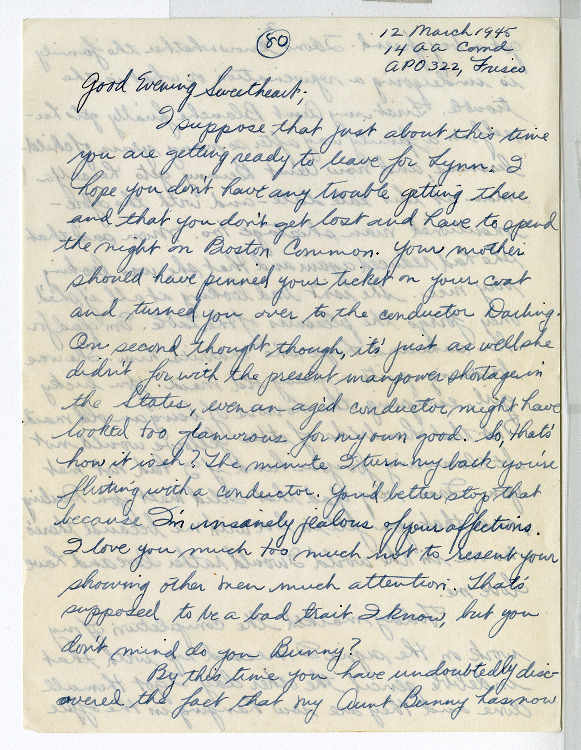 80
12 March 1945
14 AA Comd
APO 322, Frisco
Good Evening Sweetheart;
I suppose that just about this time
you are getting ready to leave for Lynn. I
hope you don't have any trouble getting there
and that you don't get lost and have to spend
the night on Boston Common. Your mother
should have pinned your ticket on your coat
and turned you over to the conductor Darling.
On second thought though, it's just as well she
didn't for with the present manpower shortage in
the States, even an aged conductor might have
looked too glamorous for my own good. So, that's
how it is eh? The minute I turn my back you're
flirting with a conductor. You'd better stop that
because I'm insanely jealous of your affections.
I love you much too much not to resent your
showing other men much attention. That's
supposed to be a bad trait I know, but you
don't mind do you Bunny?
By this time you have undoubtedly disc-
overed the fact that my Aunt Bunny has now